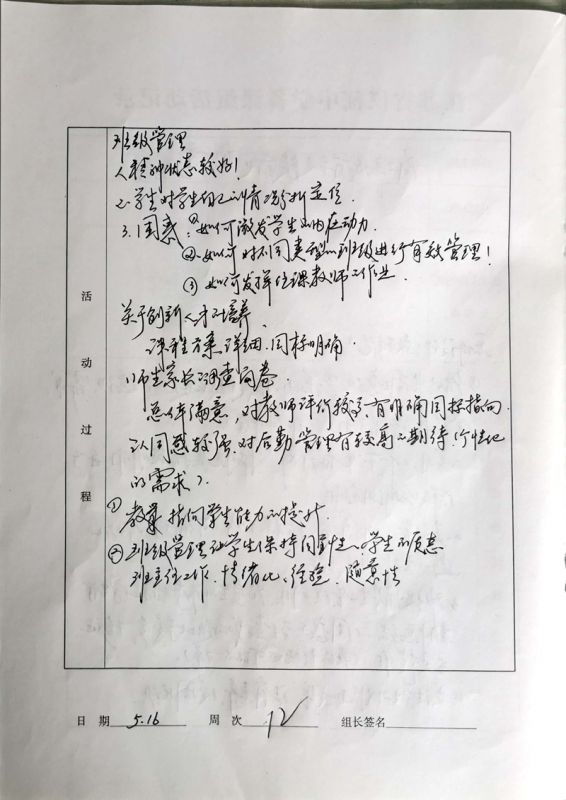 班级管理
1. 精神状态较好！
2. 学生对学生自己的情况分析定位.
3. 困惑：① 如何激发学生的内在动力.
② 如何对不同类型的班级进行有效管理！
③ 如何发挥任课教师的作业.
关于创新人才培养.
课程方案详细,目标明确.
师生家长调查问卷.
总体满意，对教师评价较高,有明确目标指向.
认同感较强.对后勤管理有较高的期待.个性化
的需求).
① 教学 指向学生能力的提升.
② 班级管理让学生保持 学生的
班主任工作.情绪化、经验、随意性
活动过程
日 期 5.16 周 次 12 组长签名